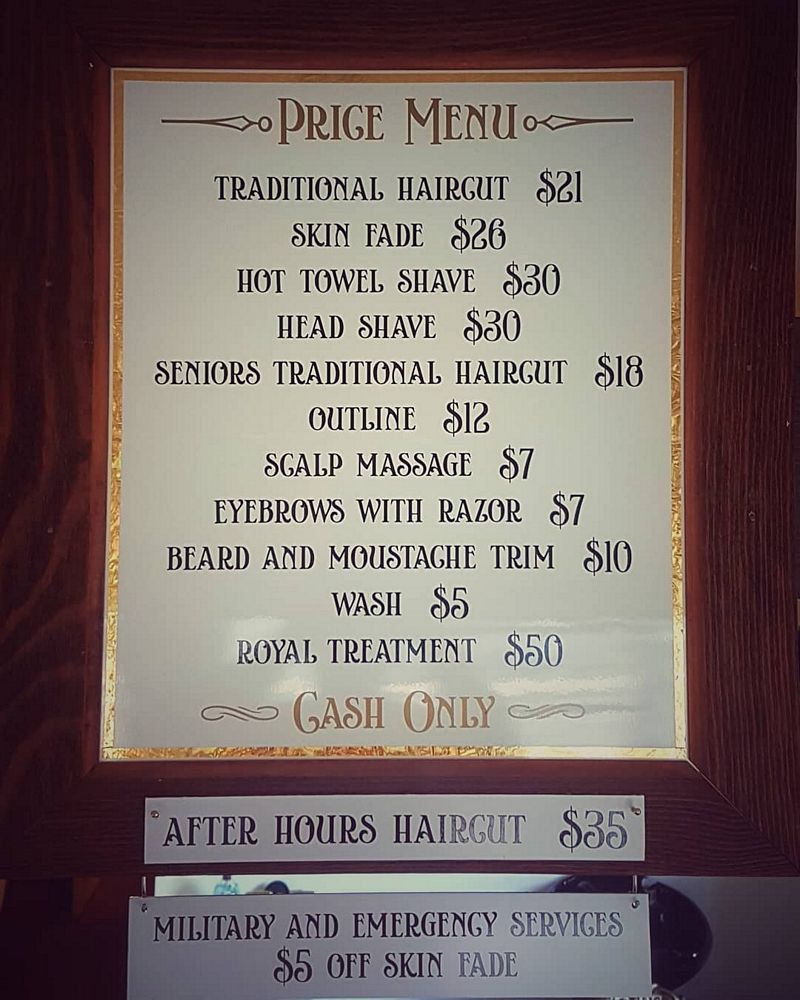 PRICE MENU
TRADITIONAL HAIRCUT $21
SKIN FADE $26
HOT TOWEL SHAVE $30
HEAD SHAVE $30
SENIORS TRADITIONAL HAIRCUT $18
OUTLINE $12
SCALP MASSAGE $7
EYEBROWS WITH RAZOR $7
BEARD AND MOUSTACHE TRIM $10
WASH $5
ROYAL TREATMENT $50
CASH ONLY
AFTER HOURS HAIRCUT $35
MILITARY AND EMERGENCY SERVICES
$5 OFF SKIN FADE